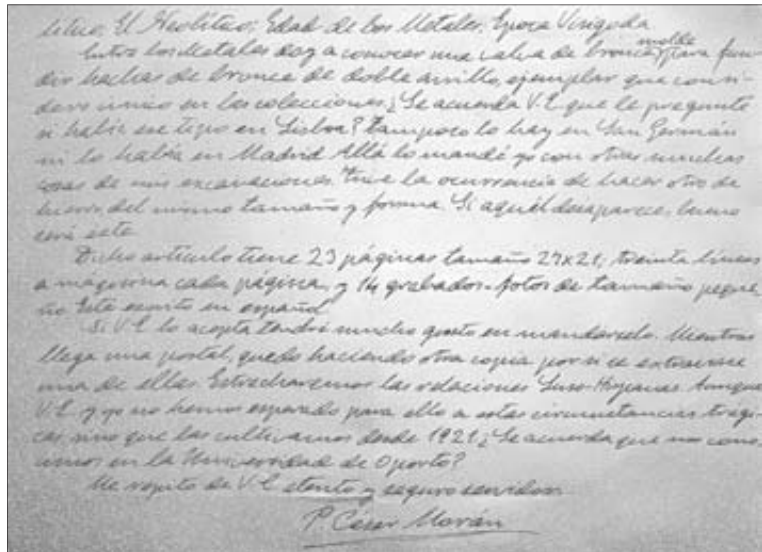 lítico; El Neolítico; Edad de los Metales; Epoca Visigoda
Entre los Metales doy a conocer una valva de bronce, molde para fun-
dir hachas de bronce de doble anillo, ejemplar que consi-
dero único en las colecciones. ¿Se acuerda V.E. que le pregunté
si había ese tipo en Lisboa? Tampoco lo hay en San Germán
ni lo había en Madrid. Allá lo mandé yo con otras muchas
cosas de mis excavaciones. Tuve la ocurrencia de hacer otro de
hierro, del mismo tamaño y forma. Si aquél desaparece, bueno
será este.
Dicho artículo tiene 23 páginas tamaño 27x21; treinta líneas
a maquina cada página, y 14 grabados-fotos de tamaño peque-
ño. Está escrito en español.
Si V.E. lo acepta tendré mucho gusto en mandárselo. Mientras
llega una postal, quedo haciendo otra copia por si se extraviase
una de ellas. Estrecharemos las relaciones Luso-Hispanas. Aunque
V.E. y yo no hemos esperado para ello a estas circunstancias trági-
cas sino que las cultivamos desde 1921. ¿Se acuerda que nos cono-
cimos en la Universidad de Oporto?
Me repito de V.E. atento y seguro servidor
P. César Morán